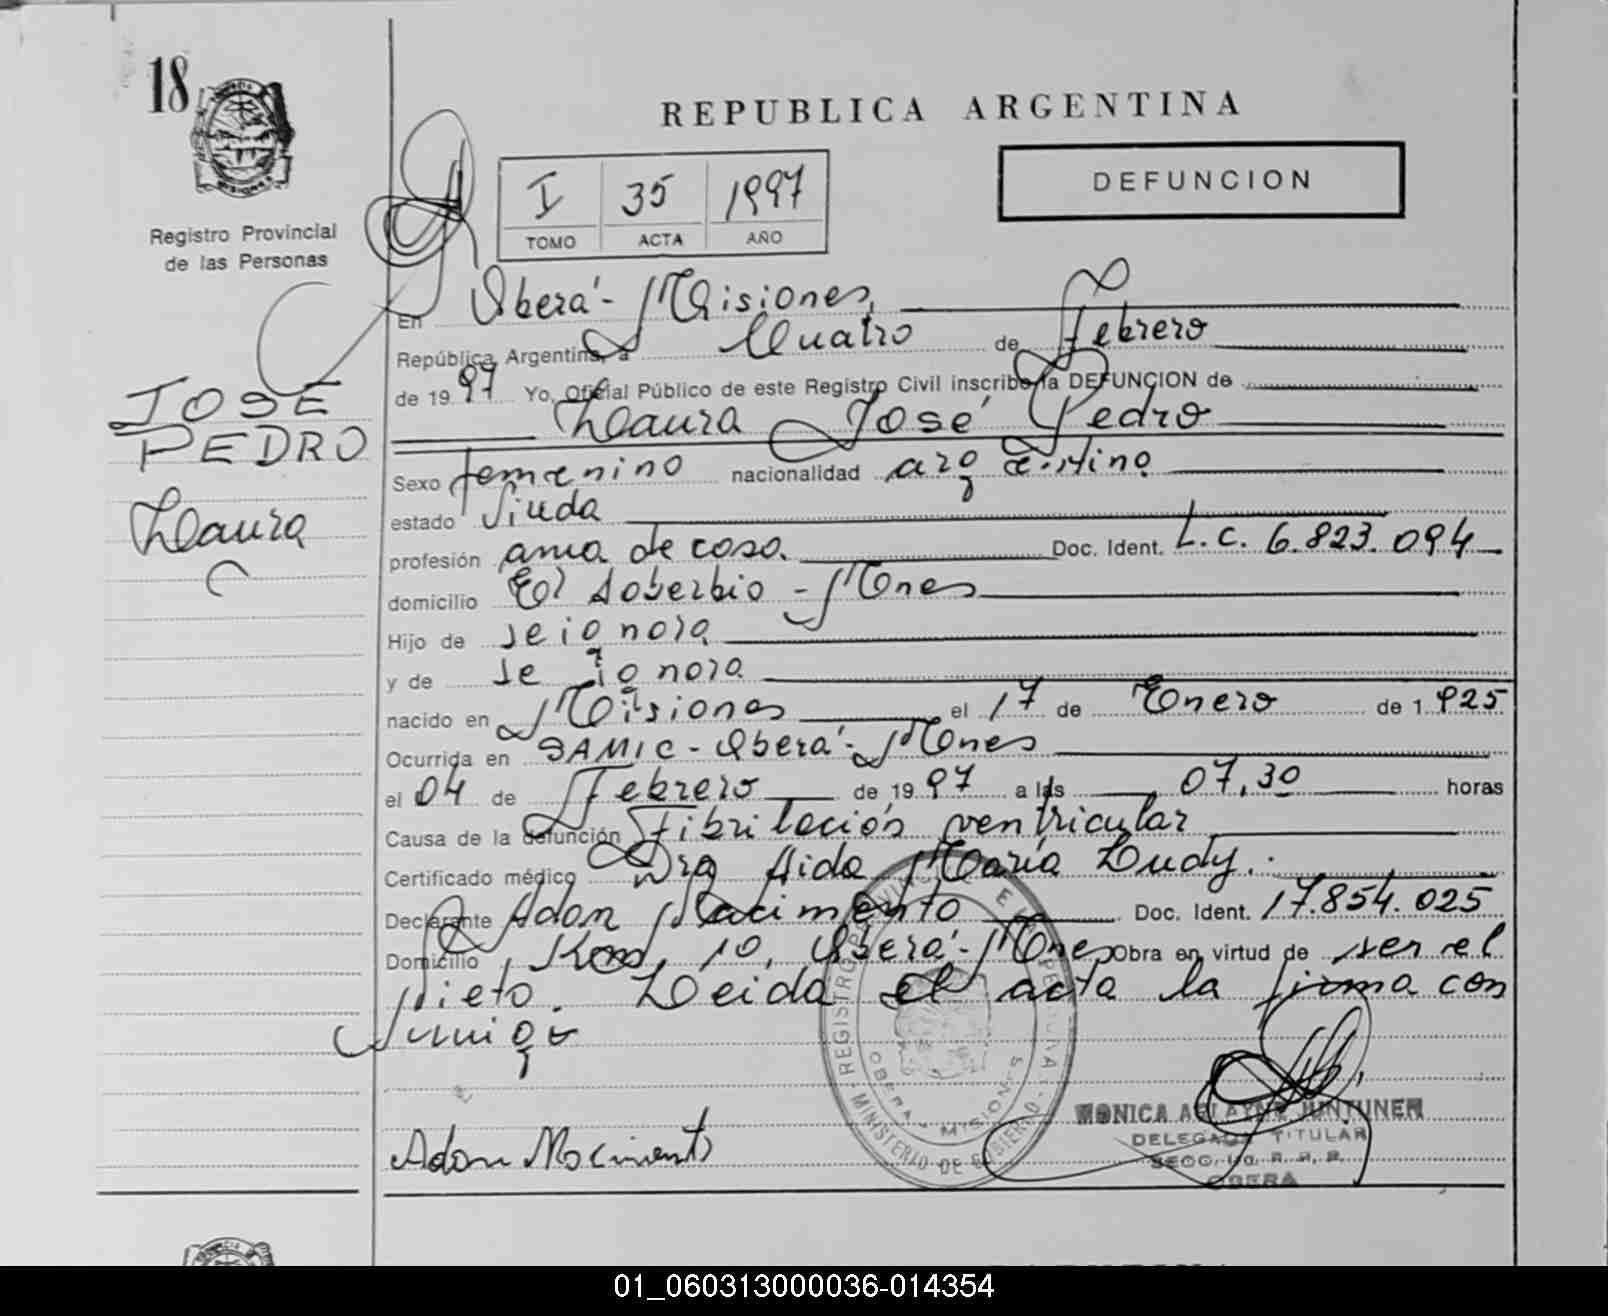 18
REPUBLICA ARGENTINA
I 35 1997
TOMO ACTA AÑO
DEFUNCION
Registro Provincial
de las Personas
JOSE
PEDRO
Laura
En Oberá - Misiones,
República Argentina, a Cuatro de Febrero
de 1997 Yo, Oficial Público de este Registro Civil inscribo la DEFUNCION de
Laura José Pedro
Sexo femenino nacionalidad argentina
estado Viuda
profesión ama de casa. Doc. Ident. L.C. 6.823.094
domicilio El Soberbio - Mnes
Hijo de se ignora
y de se ignora
nacido en Misiones el 17 de Enero de 1925
Ocurrida en SAMIC - Oberá - Mnes
el 04 de Febrero de 1997 a las 07,30 horas
Causa de la defunción Fibrilación ventricular
Certificado médico Dra Aida María Ludy.
Declarante Adan Nacimento Doc. Ident. 17.854.025
Domicilio Km 10, Oberá - Mnes Obra en virtud de ser el
Nieto. Leida el acta la firma con
migo
Adan Nacimento
REGISTRO PROVINCIAL DE LAS PERSONAS
MINISTERIO DE GOBIERNO
OBERA - MISIONES
MONICA JUNTUNEN
DELEGADA TITULAR
SECC. R. P. P.
OBERA
01_060313000036-014354